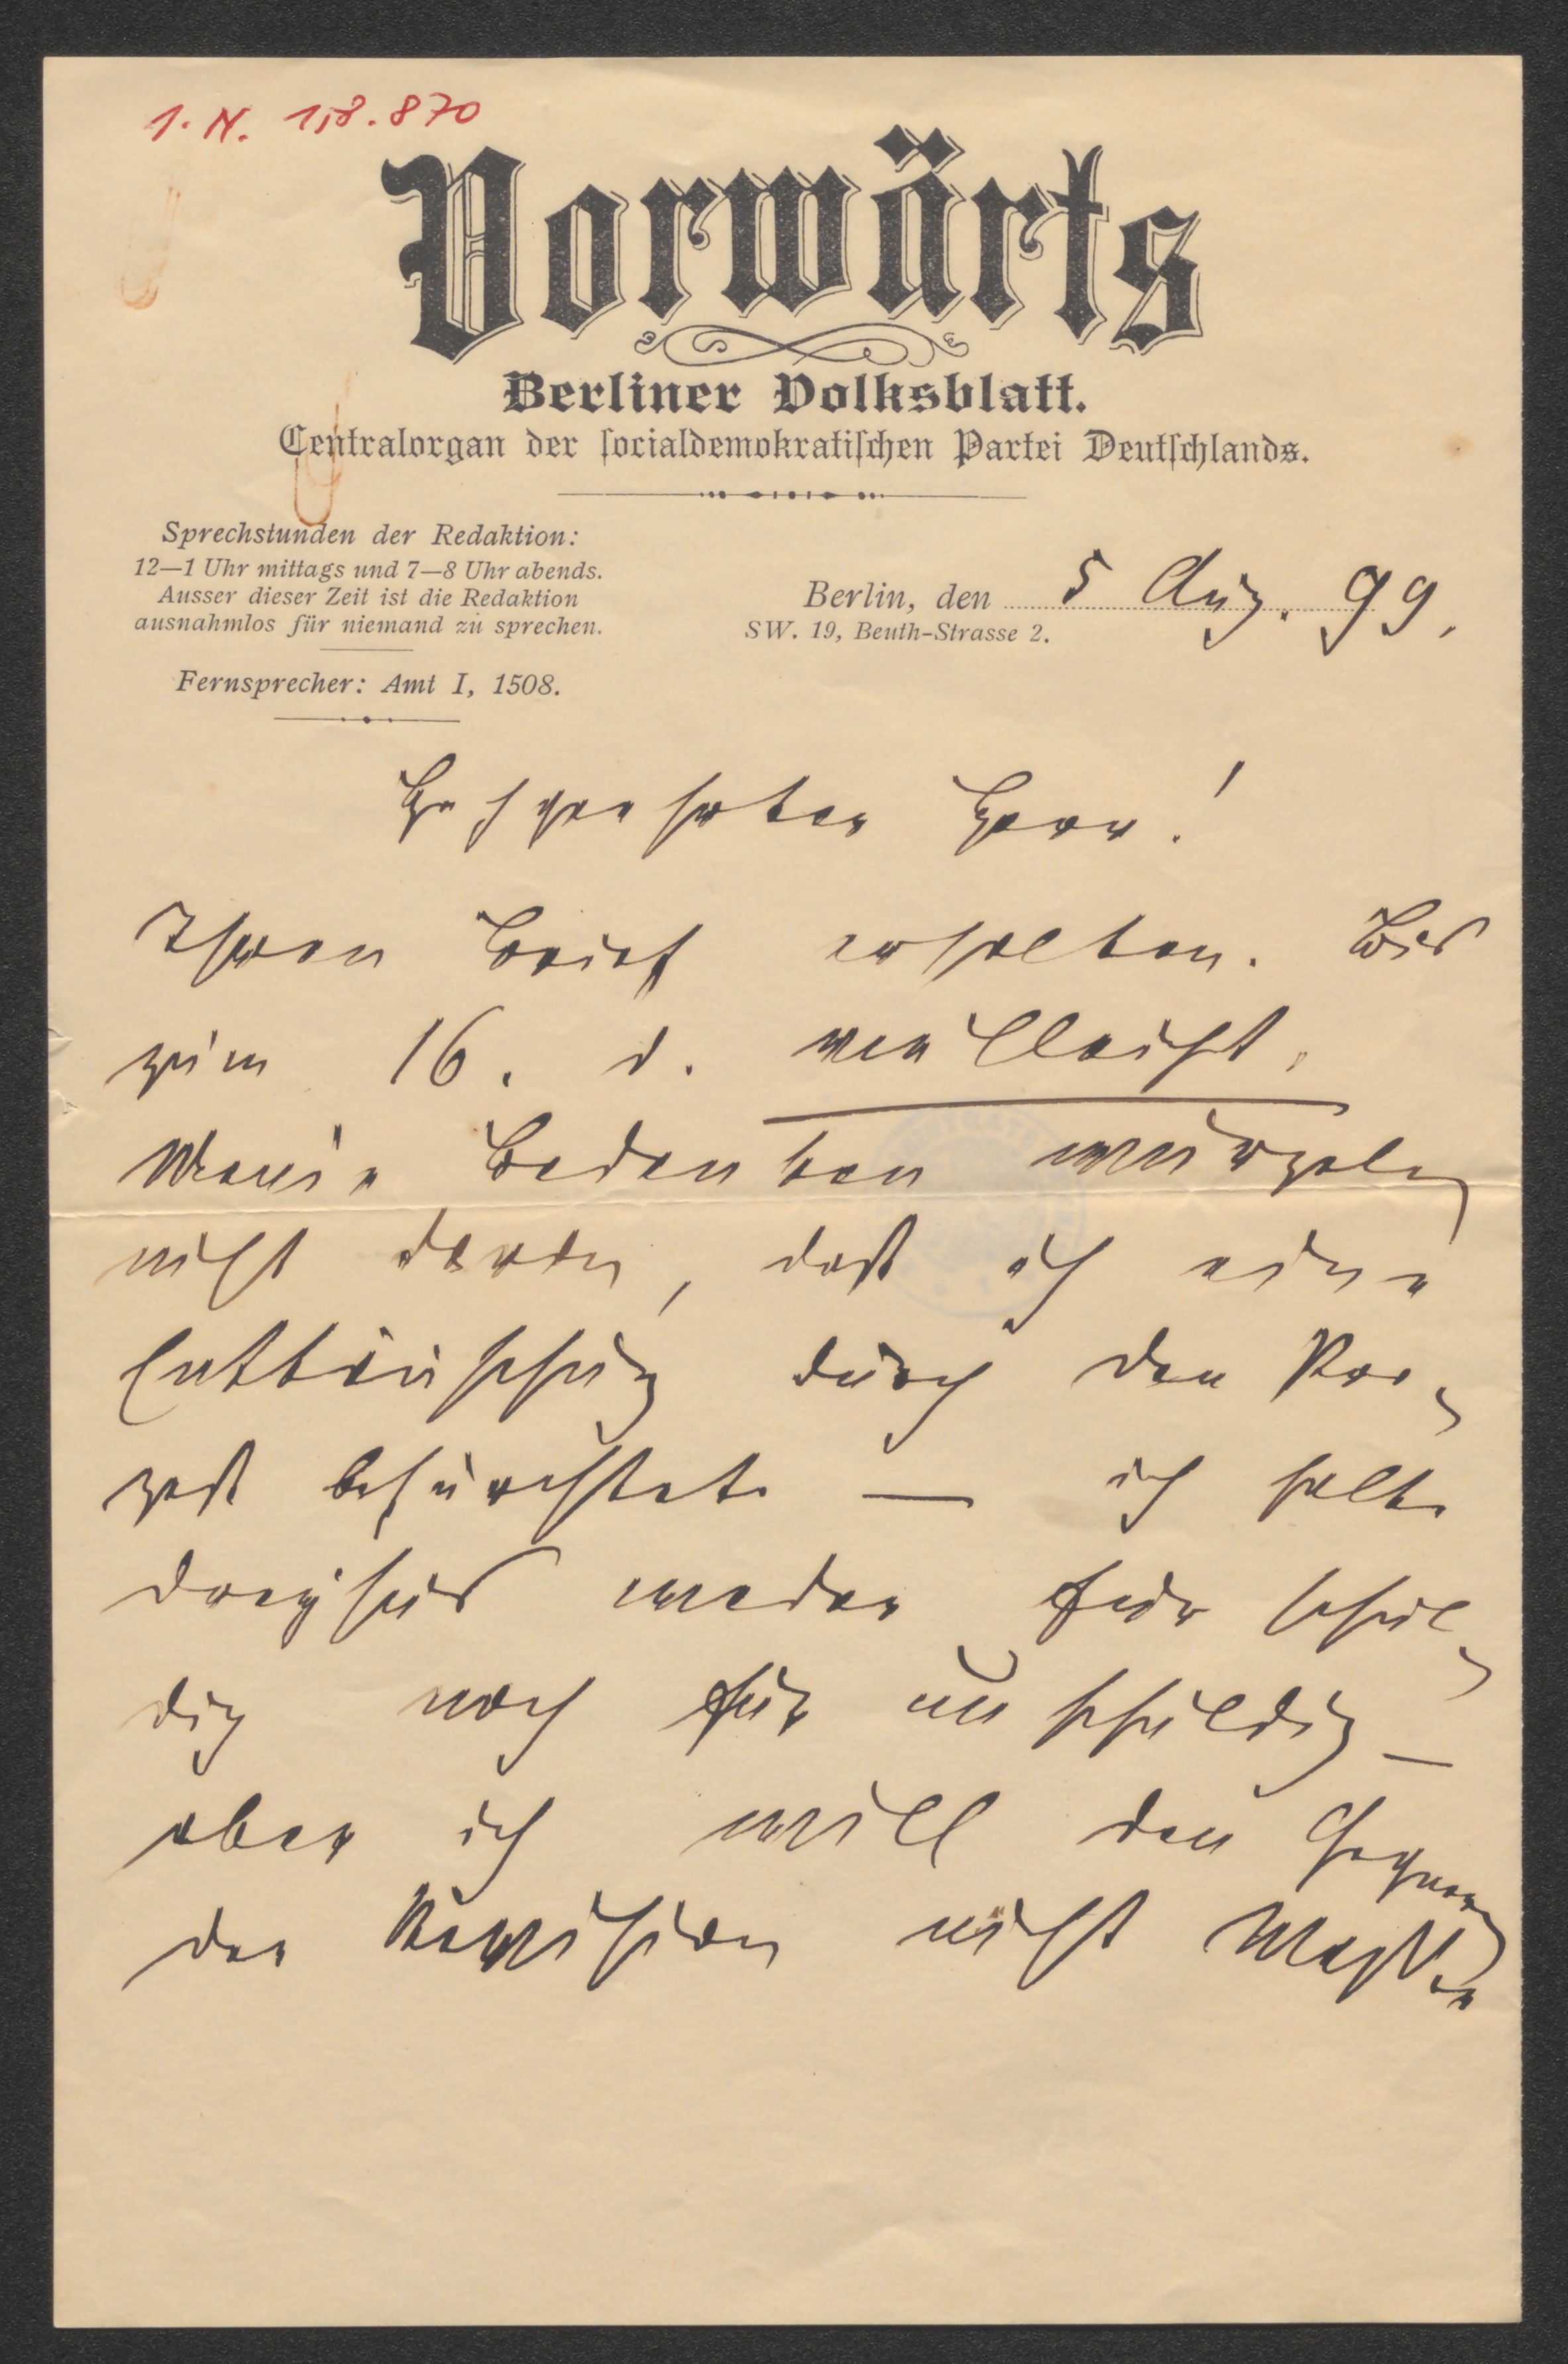 I. N. 158.870
Vorwärts
Berliner Volksblatt.
Centralorgan der socialdemokratischen Partei Deutschlands.
Sprechstunden der Redaktion:
12—1 Uhr mittags und 7—8 Uhr abends.
Ausser dieser Zeit ist die Redaktion
ausnahmlos für niemand zu sprechen.
Fernsprecher: Amt I, 1508.
Berlin, den 5 Aug. 99.
SW. 19, Beuth-Strasse 2.
Hochgeehrter Herr!
Ihren Brief erhalten. Bis
zum 16. d. vielleicht.
Meine Bedenken wurzeln
nicht darin, daß ich eine
Enttäuschung durch den Pro-
zeß befürchtete — ich halte
Dreyfus weder für schul-
dig noch für unschuldig —
aber ich will den Gegnern
der Revision nicht